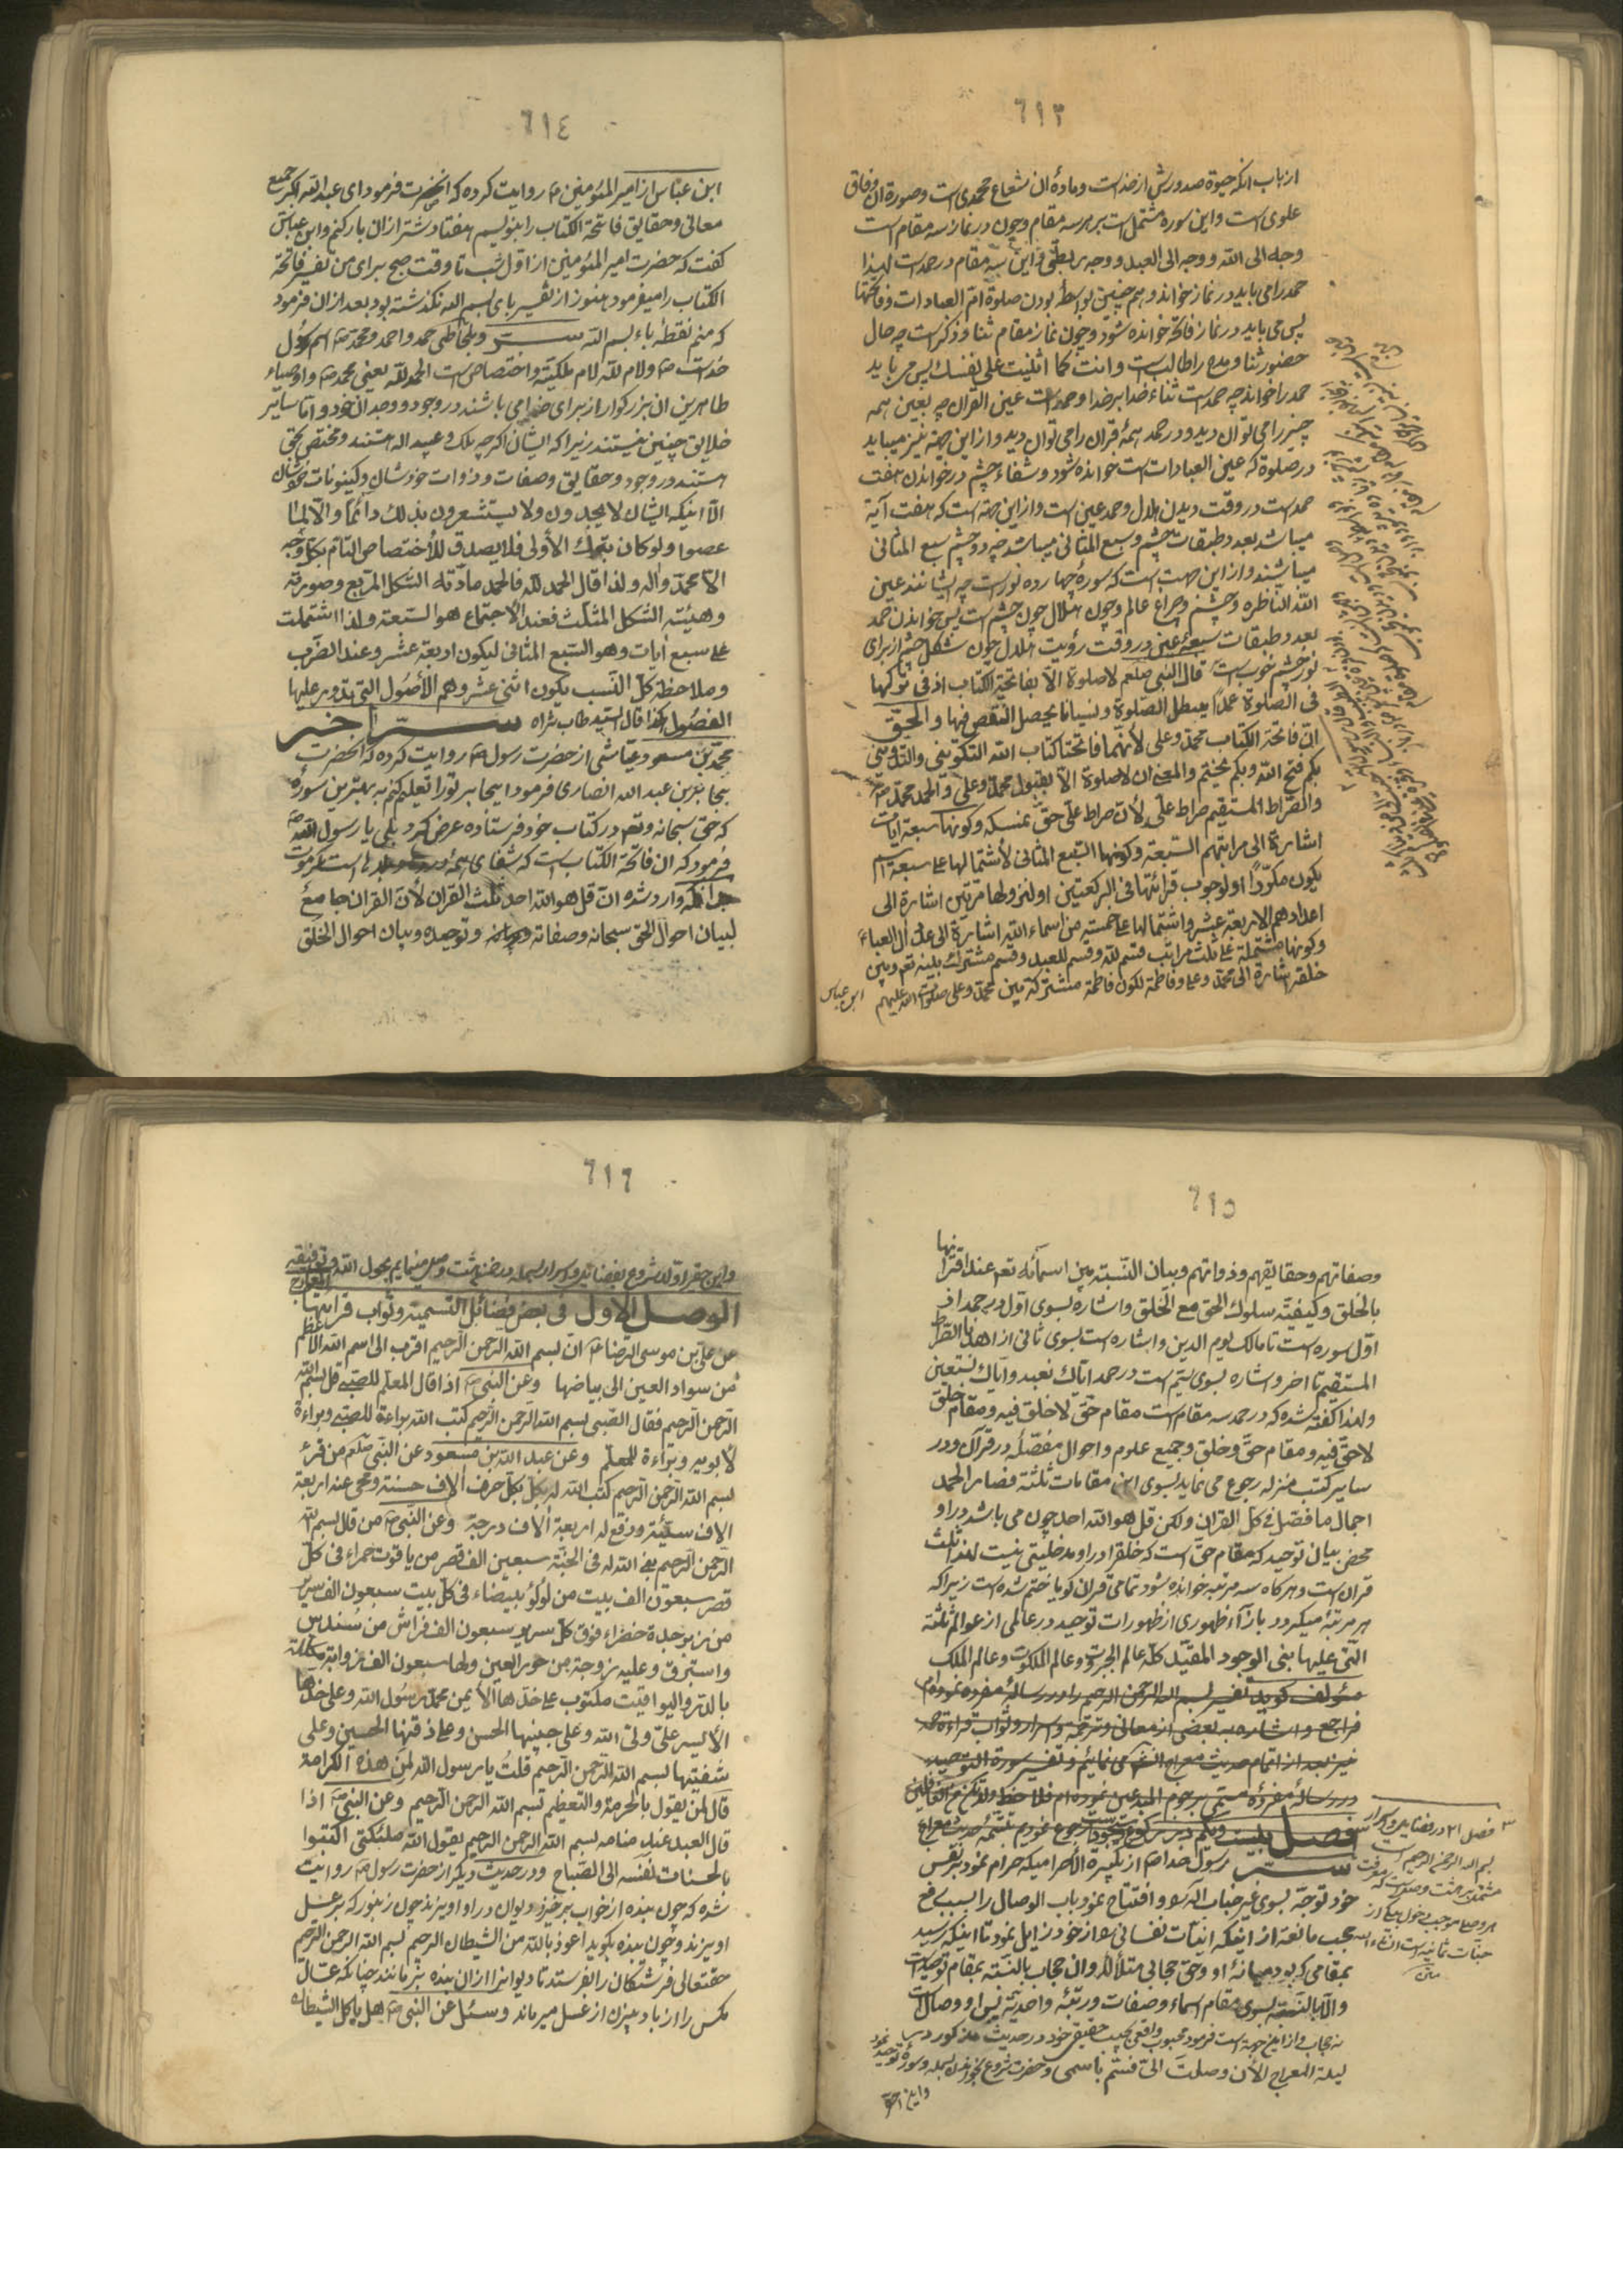 ٦١٣
از باب انکه حیوة صدورش از خداست و مادهٔ ان شعاع محمدی است و صورة ان وفاق
علوی است و این سوره مشتمل است بر هر سه مقام و چون در نماز سه مقام است
وجه الی الله و وجه الی العبد و وجه رابطی و این سه مقام در حمد است لهذا
حمد را می باید در نماز خواند و هم چنین بواسطهٔ بودن صلوة ام العبادات و فاتحتها
پس می باید در نماز فاتحه خوانده شود و چون نماز مقام ثنا و ذکر است چه حال
حضور ثنا و مدح را طالب است و انت کما اثنیت علی نفسک پس می باید
حمد را خواند چه حمد است ثناء خدا بر خدا و حمد است عین القران چه بعین همه
چیز را می توان دید و در حمد همهٔ قران را می توان دید و از این جهة نیز میباید
در صلوة که عین العبادات است خوانده شود و شفاء چشم در خواندن هفت
حمد است در وقت دیدن هلال و حمد عین است و از این جهة است که هفت آیة
میباشد بعدد طبقات چشم و سبع المثانی میباشد چه دو چشم سبع المثانی
میباشند و از این جهت است که سورهٔ چهارده نور است چه ایشانند عین
الله الناظره و چشم و چراغ عالم و چون هلال چون چشم است پس خواندن حمد
بعدد طبقات سبعهٔ عین در وقت رؤیت هلال چون شکل چشم از برای
نور چشم خوب است قال النبی صلعم لا صلوة الا بفاتحة الکتاب اذ فی ترکها
فی الصلوة عمدًا یبطل الصلوة و نسیانا یحصل النقص فیها و الحق
ان فاتحة الکتاب محمد و علی لانهما فاتحتا کتاب الله التکوینی و التدوینی
بکم فتح الله و بکم یختم و المعنی ان لا صلوة الا بقبول محمد و علی و الحمد محمد ص
و الصراط المستقیم صراط علی لان صراط علی حق نمسکه و کونها سبعة ایات
اشارة الی مراتبهم السبعة و کونها السبع المثانی لاشتمالها علی سبعة اسم
یکون مکررًا او لوجوب قرائتها فی الرکعتین او لنزولها مرتین اشارة الی
اعدادهم الاربعة عشر و اشتمالها علی خمسة من اسماء الله اشارة الی عدد ال العباء
و کونها مشتملة علی ثلث مراتب قسم لله و قسم للعبد و قسم مشترک بینه تعم و بین
خلقه اشارة الی محمد و علی و فاطمة لکون فاطمة مشترکة بین محمد و علی صلوات الله علیهم
ابن عباس
٦١٤
ابن عباس از امیر المؤمنین ع روایت کرده که انحضرت فرمود ای عبد الله اکر جمیع
معانی و حقایق فاتحة الکتاب را بنویسم هفتاد شتر از ان بار کنم و ابن عباس
کفت که حضرت امیر المؤمنین از اول شب تا وقت صبح برای من تفسیر فاتحة
الکتاب را میفرمود هنوز از تفسیر بای بسم الله نکذشته بود بعد از ان فرمود
که منم نقطهٔ باء بسم الله سر و بلحاظی حمد و احمد و محمد ص اسم رسول
خداست ص و لام لله لام ملکیة و اختصاص است الحمد لله یعنی محمد ص و اوصیاء
طاهرین ان بزرکوار از برای خدا می باشند در وجود و وجدان خود و اما سایر
خلایق چنین نیستند زیرا که ایشان اکرچه ملک و عبید اله هستند و مختص بحق
هستند در وجود و حقایق و صفات و ذوات خودشان و کینونات خودشان
الا اینکه ایشان لا یجدون و لا یستشعرون بذلک دائما و الا لما
عصوا و لو کان بترک الاولی فلا یصدق للاختصاص التام بکل وجه
الا محمد و اله و لذا قال الحمد لله فالحمد مادته الشکل المربع و صورته
و هیئته الشکل المثلث فعند الاجتماع هو السبعة و لذا اشتملت
علی سبع ایات و هو السبع المثانی لیکون اربعة عشر و عند الضرب
و ملاحظة کل النسب یکون اثنی عشر و هم الاصول التی تدور علیها
الفصول کذا قال السید طاب ثراه سر اخر
محمد بن مسعود عیاشی از حضرت رسول ص روایت کرده که انحضرت
بجابر بن عبد الله انصاری فرمود ای جابر تو را تعلیم کنم به بهترین سورهٔ
که حق سبحانه و تعم در کتاب خود فرستاده عرض کرد بلی یا رسول الله ص
فرمود که ان فاتحة الکتاب است که شفای همهٔ دردها است مکر موت
وارد شده ان قل هو الله احد ثلث القران لان القران جامع
لبیان احوال الحق سبحانه و صفاته و توحیده و بیان احوال الخلق
٦١٥
و صفاتهم و حقایقهم و ذواتهم و بیان النسبة بین اسمائه تعم عند اقترانها
بالخلق و کیفیة سلوک الحق مع الخلق و اشاره بسوی اول در حمد از
اول سوره است تا مالک یوم الدین و اشاره است بسوی ثانی از اهدنا الصراط
المستقیم تا اخر و اشاره بسوی سیم است در حمد ایاک نعبد و ایاک نستعین
و لهذا کفته شده که در حمد سه مقام است مقام حق لا خلق فیه و مقام خلق
لا حق فیه و مقام حق و خلق و جمیع علوم و احوال مفصله در قرآن و در
سایر کتب منزله رجوع می نماید بسوی این مقامات ثلثة فصار الحمد
اجمال ما فصل فی کل القران و لکن قل هو الله احد چون می باشد در او
محض بیان توحید که مقام حق است که خلق را در او مدخلیتی نیست لهذا ثلث
قران است و هرکاه سه مرتبه خوانده شود تمامی قران کویا ختم شده است زیرا که
هر مرتبهٔ میکیرد بازاء ظهوری از ظهورات توحید در عالمی از عوالم ثلثة
التی علیها بنی الوجود المقید کله عالم الجبروت و عالم الملکوت و عالم الملک
مؤلف کوید تفسیر بسم الله الرحمن الرحیم را در رسالهٔ مفرده نموده ام
فراجع و اشاره به بعضی از معانی و ترجمه و اسرار و ثواب قراءة حمد
نیز بعد از اتمام حدیث معراج انشم می نمائیم و تفسیر سورة التوحید
در رسالهٔ مفردهٔ مسمی برجوم المبدعین نموده ام فلاحظ و لا تکن من الغافلین
فصل بیست و یکم در سر رکوع و سجود است رجوع نمودم بتتمهٔ حدیث معراج
سر رسول خدا ص از تکبیرة الاحرامیکه حرام نمود بر نفس
خود توجه بسوی غیر جناب اله را و افتتاح نمود باب الوصال را بسبب رفع
حجب مانعه از اینکه انیات نفسانی را از خود زایل نمود تا اینکه رسید
بمقامی که بود میانهٔ او و حق حجابی متلألأ و ان حجاب بالنسبة بمقام توحید است
و الا بالنسبة بسوی مقام اسماء و صفات و رتبهٔ واحدیة نیز او وصال است
نه حجاب و از این جهة است فرمود محبوب واقعی بحبیب حقیقی خود در حدیث مذکور در
لیلة المعراج الان وصلت الی فسم باسمی و حضرت شروع بخواندن بسمله و سورهٔ توحید نمود
و این احقر
فصل ۲۱ در فضایل و اسرار
بسم الله الرحمن الرحیم است
مشتمل بر هشت وصل است که معرفت
هر وصلی موجب دخول بیکی از
جنات ثمانیه است انشاء الله
منه
٦١٦
و این حقیر اولا شروع بفضایل و اسرار بسمله در ضمن هشت وصل مینمایم بحول الله و توفیقه
الوصل الاول فی بعض فضائل التسمیة و ثواب قرائتها
عن علی بن موسی الرضا ع ان بسم الله الرحمن الرحیم اقرب الی اسم الله الاعظم
من سواد العین الی بیاضها و عن النبی ص اذا قال المعلم للصبی قل بسم الله
الرحمن الرحیم فقال الصبی بسم الله الرحمن الرحیم کتب الله براءة للصبی و براءة
لابویه و براءة للمعلم و عن عبد الله بن مسعود عن النبی صلعم من قرء
بسم الله الرحمن الرحیم کتب الله له بکل حرف الاف حسنة و محی عنه اربعة
الاف سیئة و رفع له اربعة الاف درجة و عن النبی ص من قال بسم الله
الرحمن الرحیم بنی الله له فی الجنة سبعین الف قصر من یاقوت حمراء فی کل
قصر سبعون الف بیت من لؤلؤ بیضاء فی کل بیت سبعون الف سریر
من زبرجدة خضراء فوق کل سریر سبعون الف فراش من سندس
و استبرق و علیه زوجة من حور العین و لها سبعون الف ذوابة مکللة
بالدر و الیواقیت مکتوب علی خدها الایمن محمد رسول الله و علی خدها
الایسر علی ولی الله و علی جبینها الحسن و علی ذقنها الحسین و علی
شفتیها بسم الله الرحمن الرحیم قلت یا رسول الله لمن هذه الکرامة
قال لمن یقول بالحرمة و التعظیم بسم الله الرحمن الرحیم و عن النبی ص اذا
قال العبد عند منامه بسم الله الرحمن الرحیم یقول الله ملئکتی اکتبوا
بالحسنات نفسه الی الصباح و در حدیث دیکر از حضرت رسول ص روایت
شده که چون بنده از خواب برخیزد دیوان در او اویزند چون زنبور که بر عسل
اویزند و چون بنده بکوید اعوذ بالله من الشیطان الرجیم بسم الله الرحمن الرحیم
حقتعالی فرشتکان را بفرستد تا دیوانرا از ان بنده برمانند چنانکه عسال
مکس را از باد بیزن از عسل میرماند و سئل عن النبی ص هل یاکل الشیطان